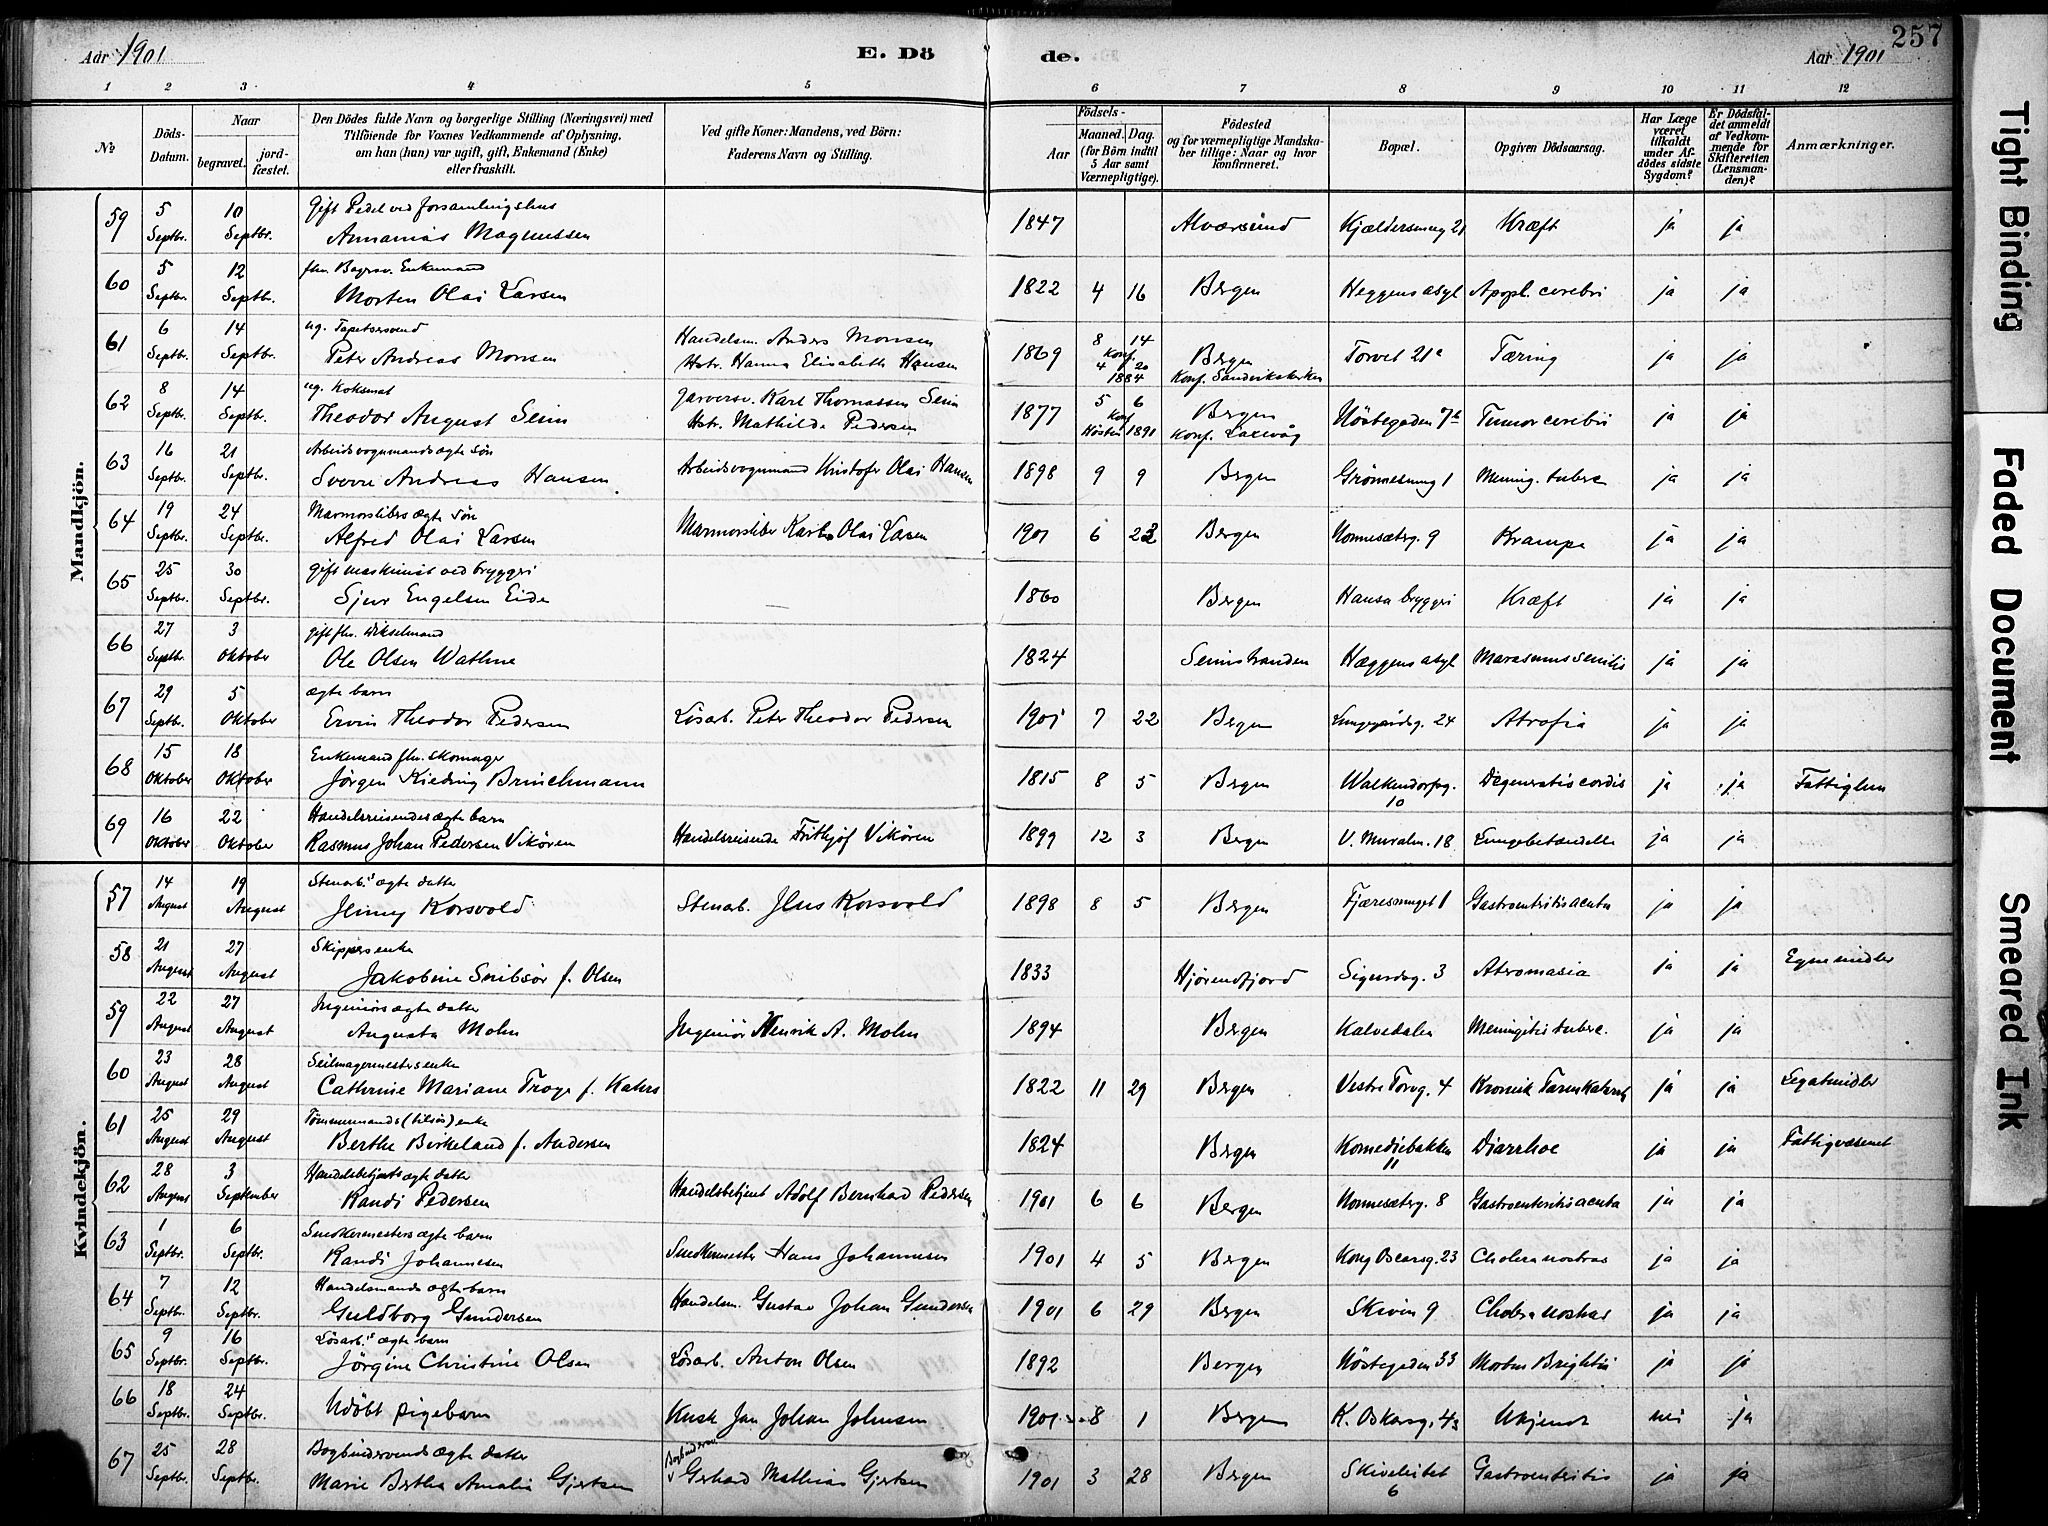 Aar 1901
E. Dö
de.
Aar 1901
257
1 2 3 4 5 6 7 8 9 10 11 12
№
Döds-Datum.
Naar
begravet.
jord-fæstet.
Den Dödes fulde Navn og borgerlige Stilling (Næringsvei) med
Tilföiende for Voxnes Vedkommende af Oplysning,
om han (hun) var ugift, gift, Enkemand (Enke)
eller fraskilt.
Ved gifte Koner: Mandens, ved Börn:
Faderens Navn og Stilling.
Födsels-
Aar
Maaned. Dag.
(for Börn indtil
5 Aar samt
Værnepligtige).
Födested
og for værnepligtige Mandska-
ber tillige: Naar og hvor
konfirmeret.
Bopæl.
Opgiven Dödsaarsag.
Har Læge
været
tilkaldt
under Af-
dödes sidste
Sygdom?
Er Dödsfal-
det anmeldt
af Vedkom-
mende for
Skifteretten
(Lensman-
den)?
Anmærkninger.
Mandkjön.
59 5 Septbr. 10 Septbr. Gift Pedel ved forsamlingshus
Annanias Magnussen 1847 Alværsund Kjældersmug 21 Kræft ja ja
60 5 Septbr. 12 Septbr. fhv. Bagersv. Enkemand
Morten Olai Larsen 1822 4 16 Bergen Heggens asyl Apopl. cerebri ja ja
61 6 Septbr. 14 Septbr. ug. Tapetsersvend
Peter Andreas Monsen Handelsm. Anders Monsen
Hstr. Hanna Elisabeth Hansen 1869 8 14 Konf. 4 20 1884 Bergen Konf. Sandvikskirken Torvet 21a Tæring ja ja
62 8 Septbr. 14 Septbr. ug. Koksmat
Theodor August Seim Garversv. Karl Thomassen Seim
Hstr. Mathilde Pedersen 1877 5 6 Konf. Hösten 1891 Bergen Konf. Laxevåg Nöstegaden 7b Tumor cerebri ja ja
63 16 Septbr. 21 Septbr. Arbeidsvognmands ægte sön
Sverre Andreas Hansen Arbeidsvognmand Kristofer Olai Hansen 1898 9 9 Bergen Grönnesmug 1 Mening. tuberc ja ja
64 19 Septbr. 24 Septbr. Marmorslibers ægte sön
Alfred Olai Larsen Marmorsliber Karl Olai Larsen 1901 6 22 Bergen Nonnesæterg. 9 Krampe ja ja
65 25 Septbr. 30 Septbr. gift maskinist ved bryggeri
Sjur Engelsen Eide 1860 Bergen Hansa bryggeri Kræft ja ja
66 27 Septbr. 3 Oktober gift fhv.
Ole Olsen Wathne 1824 Seimstranden Hæggens asyl Marasmus senilis ja ja
67 29 Septbr. 5 Oktober ægte barn
Ervin Theodor Pedersen Lösarb. Peter Theodor Pedersen 1901 7 22 Bergen Lungegårdsg. 24 Atrofia ja ja
68 15 Oktober 18 Oktober Enkemand fhv. skomager
Jörgen Kieding Brinchmann 1815 8 5 Bergen Walkendorfsg. 10 Degeneratis cordis ja ja Fattiglem
69 16 Oktober 22 Oktober Handelsreisendes ægte barn
Rasmus Johan Pedersen Vikören Handelsreisende Frithjof Vikören 1899 12 3 Bergen V. Muralm. 18 Lungebetændelse ja ja
Kvindekjön.
57 14 August 19 August Stenarb.s ægte datter
Jenny Korsvold Stenarb. Jens Korsvold 1898 8 5 Bergen Fjæresmuget 1 Gastroenteritis acuta ja ja
58 21 August 27 August Skippers enke
Jakobine Snibsör f. Olsen 1833 Hjörendfjord Sigurdsg. 3 Atromasia ja ja Egne midler
59 22 August 27 August Ingeniörs ægte datter
Augusta Mohn Ingeniör Henrik A. Mohn 1894 Bergen Kalvedalen Meningitis tuberc. ja ja
60 23 August 28 August Seilmagermesters enke
Cathrine Mariane Troye f. Kahrs 1822 11 29 Bergen Vestre Torvg. 4 Kronisk Tarmkatarrh ja ja Legatmidler
61 25 August 29 August Tömmermands (tilsös) enke
Berthe Birkeland f. Andersen 1824 Bergen Komediebakken 11 Diarrhoe ja ja Fattigvæsenet
62 28 August 3 September Handelsbetjents ægte datter
Randi Pedersen Handelsbetjent Adolf Bernhard Pedersen 1901 6 6 Bergen Nonnesæterg. 8 Gastroenteritis acuta ja ja
63 1 Septbr. 6 Septbr. Snedkermesters ægte barn
Randi Johannesen Snedkermester Hans Johannesen 1901 4 5 Bergen Kong Oscarsg. 23 Cholera nostras ja ja
64 7 Septbr. 12 Septbr. Handelsmands ægte barn
Guldborg Gundersen Handelsm. Gustav Johan Gundersen 1901 6 29 Bergen Skiven 9 Cholera nostras ja ja
65 9 Septbr. 16 Septbr. Lösarb.s ægte barn
Jörgine Christine Olsen Lösarb. Anton Olsen 1892 Bergen Nöstegaden 33 Morbus Brightii ja ja
66 18 Septbr. 24 Septbr. Udöbt pigebarn Kusk Jan Johan Johnsen 1901 8 1 Bergen K. Oskarsg. 43 Ukjendt nei ja
67 25 Septbr. 28 Septbr. Bogbindersvends ægte datter
Marie Bertha Amalia Gjertsen Bogbindersv. Gerhard Mathias Gjertsen 1901 3 28 Bergen Skivebakket 6 Gastroenteritis ja ja
Tight Binding
Faded Document
Smeared Ink